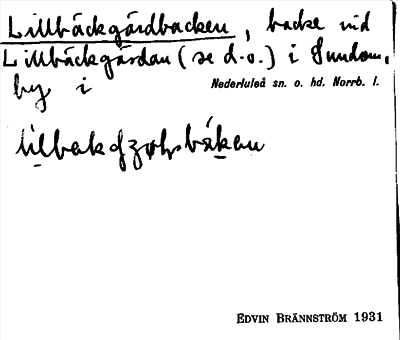 Lillbäckgårdbacken, backe vid
Lillbäckgårdan (se d.o.) i Sundom,
by i Nederluleå sn. o. hd. Norrb. l.
EDVIN BRÄNNSTRÖM 1931